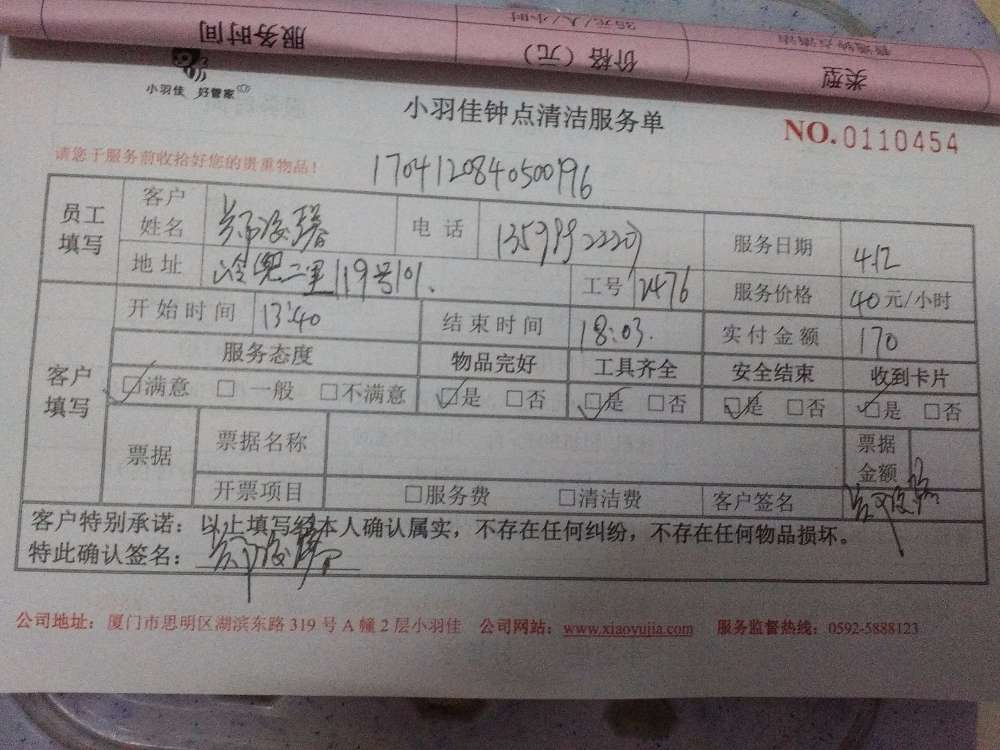 服务时间
价格（元）
35元/人/小时
类型
普通钟点清洁
小羽佳 好管家
小羽佳钟点清洁服务单
NO.0110454
请您于服务前收拾好您的贵重物品！
1704120840500196
员工填写
客户姓名
电话
服务日期 4.12
地址 119号101.
工号 2476
服务价格 40元/小时
客户填写
开始时间 13:40
结束时间 18:03.
实付金额 170
服务态度 物品完好 工具齐全 安全结束 收到卡片
☑满意 □一般 □不满意 ☑是 □否 ☑是 □否 ☑是 □否 ☑是 □否
票据 票据名称 票据金额
开票项目 □服务费 □清洁费 客户签名
客户特别承诺：以上填写经本人确认属实，不存在任何纠纷，不存在任何物品损坏。
特此确认签名：
公司地址：厦门市思明区湖滨东路319号A幢2层小羽佳 公司网站：www.xiaoyujia.com 服务监督热线：0592-5888123